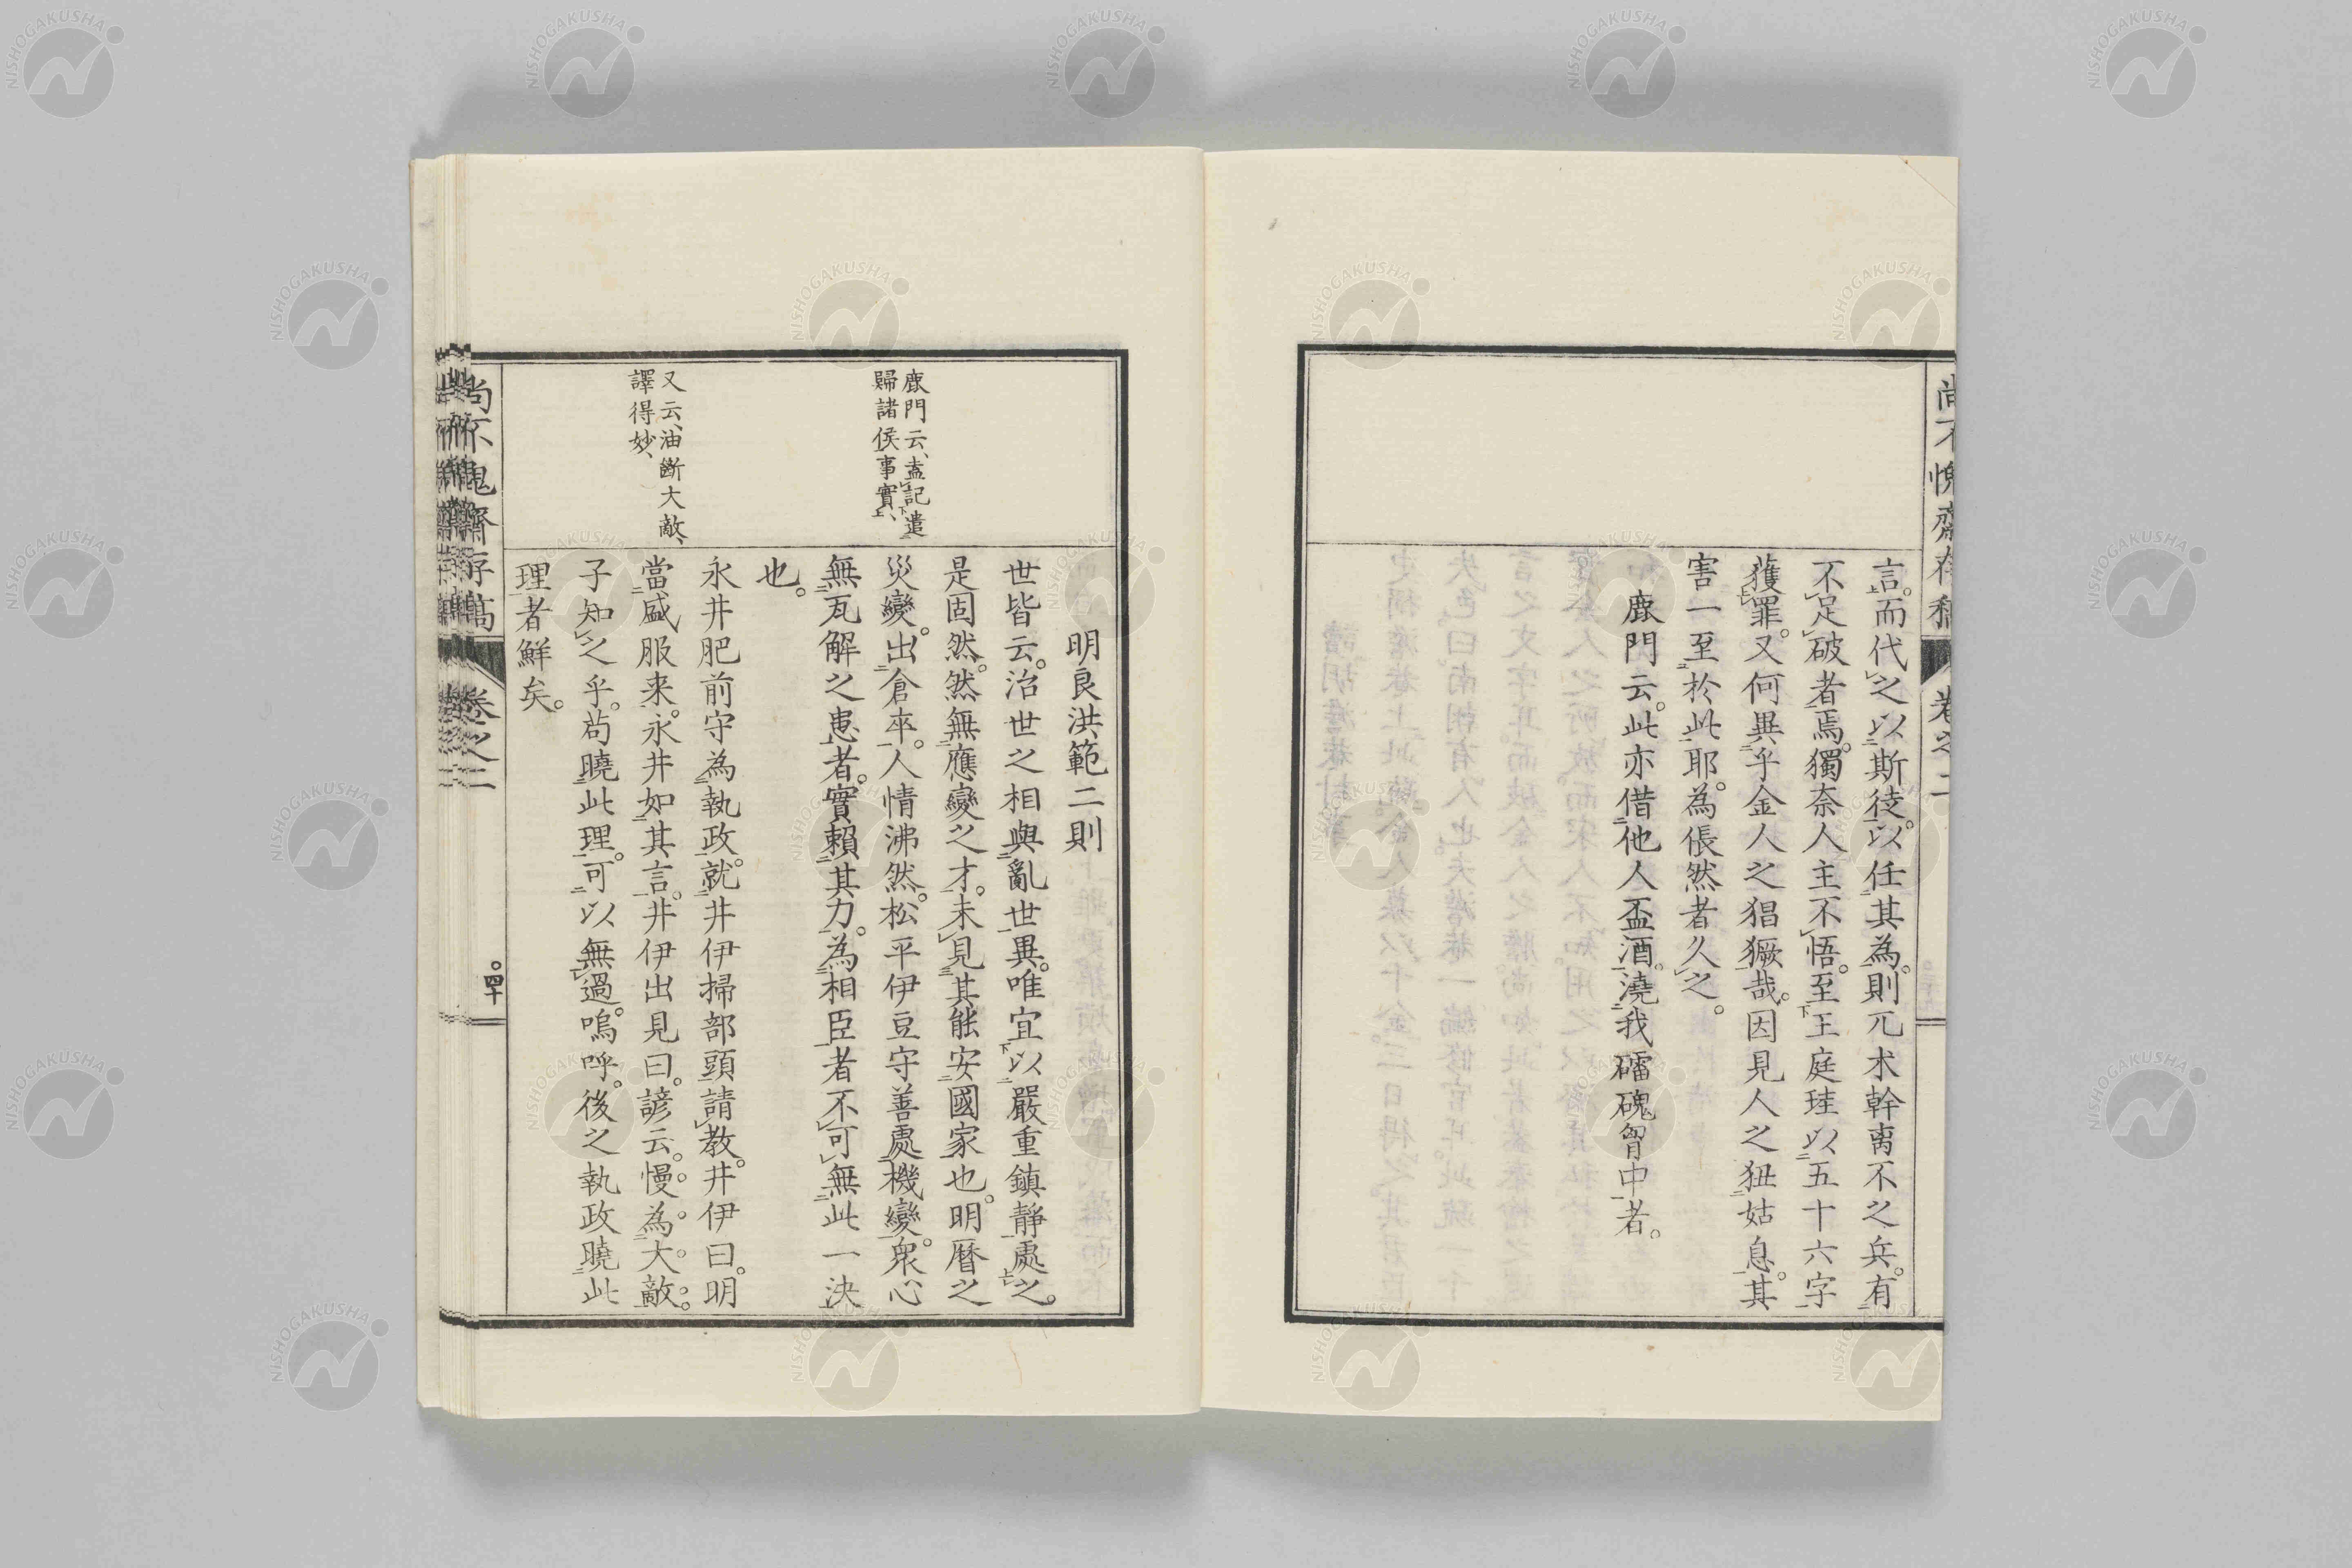 尚不愧齋存稿 卷之二
言。而代之以斯徒。以任其為。則兀朮幹离不之兵。有
不足破者焉。獨奈人主不悟。至王庭珪以五十六字
獲罪。又何異乎金人之猖獗哉。因見人之狃姑息。其
害一至於此耶。為倀然者久之。
鹿門云。此亦借他人盃酒。澆我礌磈胷中者。
明良洪範二則
鹿門云、盍記遣
歸諸侯事實、
世皆云。治世之相與亂世異。唯宜以嚴重鎮靜處之。
是固然。然無應變之才。未見其能安國家也。明曆之
災變。出倉卒。人情沸然。松平伊豆守善處機變。衆心
無瓦解之患者。實賴其力。為相臣者不可無此一決
也。
又云、油斷大敵、
譯得妙、
永井肥前守為執政。就井伊掃部頭請教。井伊曰。明
當盛服来。永井如其言。井伊出見曰。諺云。慢為大敵。
子知之乎。苟曉此理。可以無過。嗚呼。後之執政曉此
理者鮮矣。
尚不愧齋存稿 卷之二 四十
NISHOGAKUSHA